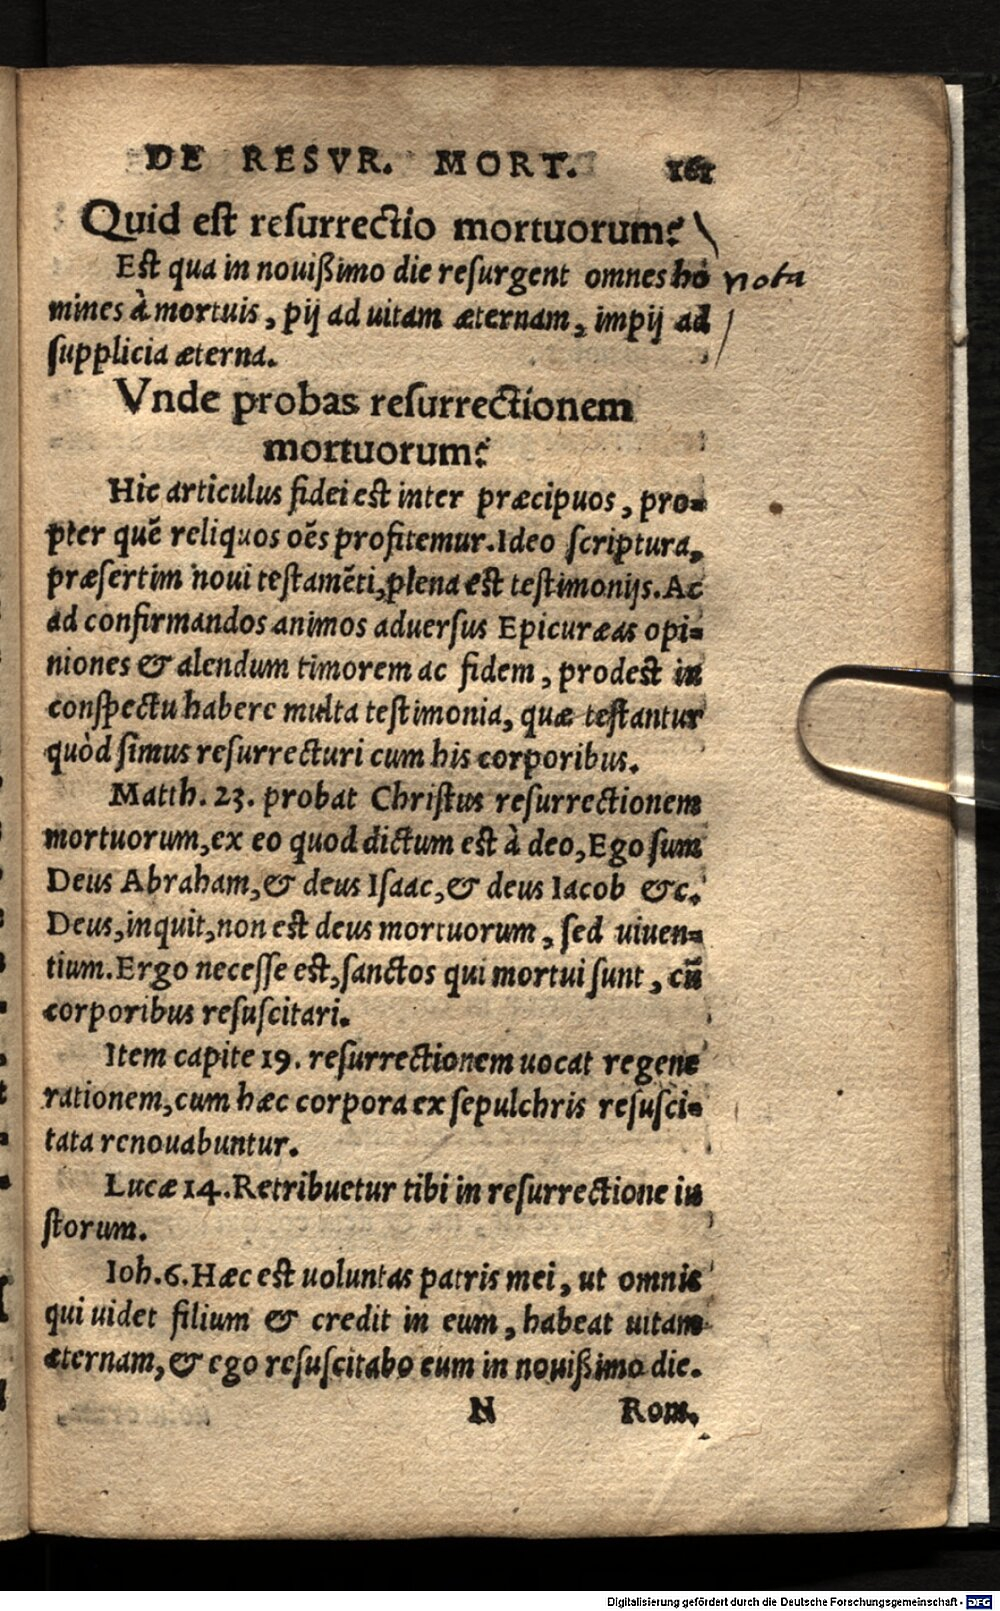 DE RESVR. MORT. 161
Quid est resurrectio mortuorum?
Est qua in nouißimo die resurgent omnes ho
Nota
mines à mortuis, pij ad uitam æternam, impij ad
supplicia æterna.
Vnde probas resurrectionem
mortuorum?
Hic articulus fidei est inter præcipuos, pro-
pter quẽ reliquos oẽs profitemur. Ideo scriptura,
præsertim noui testamẽti, plena est testimonijs. Ac
ad confirmandos animos aduersus Epicuræas opi-
niones & alendum timorem ac fidem, prodest in
conspectu habere multa testimonia, quæ testantur
quòd simus resurrecturi cum his corporibus.
Matth. 23. probat Christus resurrectionem
mortuorum, ex eo quod dictum est à deo, Ego sum
Deus Abraham, & deus Isaac, & deus Iacob &c.
Deus, inquit, non est deus mortuorum, sed uiuen-
tium. Ergo necesse est, sanctos qui mortui sunt, cũ
corporibus resuscitari.
Item capite 19. resurrectionem uocat regene
rationem, cum hæc corpora ex sepulchris resusci-
tata renouabuntur.
Lucæ 14. Retribuetur tibi in resurrectione iu
storum.
Ioh. 6. Hæc est uoluntas patris mei, ut omnis
qui uidet filium & credit in eum, habeat uitam
æternam, & ego resuscitabo eum in nouißimo die.
N Rom.
Digitalisierung gefördert durch die Deutsche Forschungsgemeinschaft - DFG